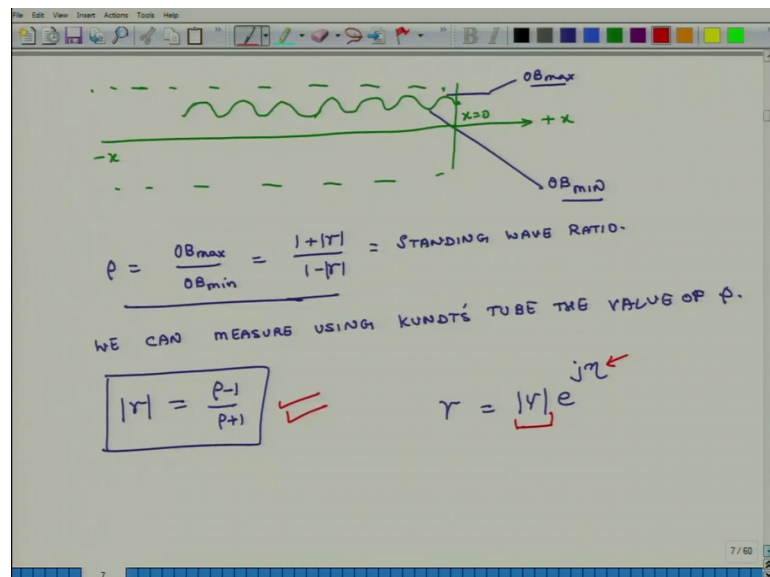 File Edit View Insert Actions Tools Help
B I
OBmax
x=0
+x
-x
OBMIN
ρ = OBmax / OBmin = 1+|r| / 1-|r| = STANDING WAVE RATIO.
WE CAN MEASURE USING KUNDT'S TUBE THE VALUE OF ρ.
|r| = ρ-1 / ρ+1
r = |r| e^jη
7 / 60
7